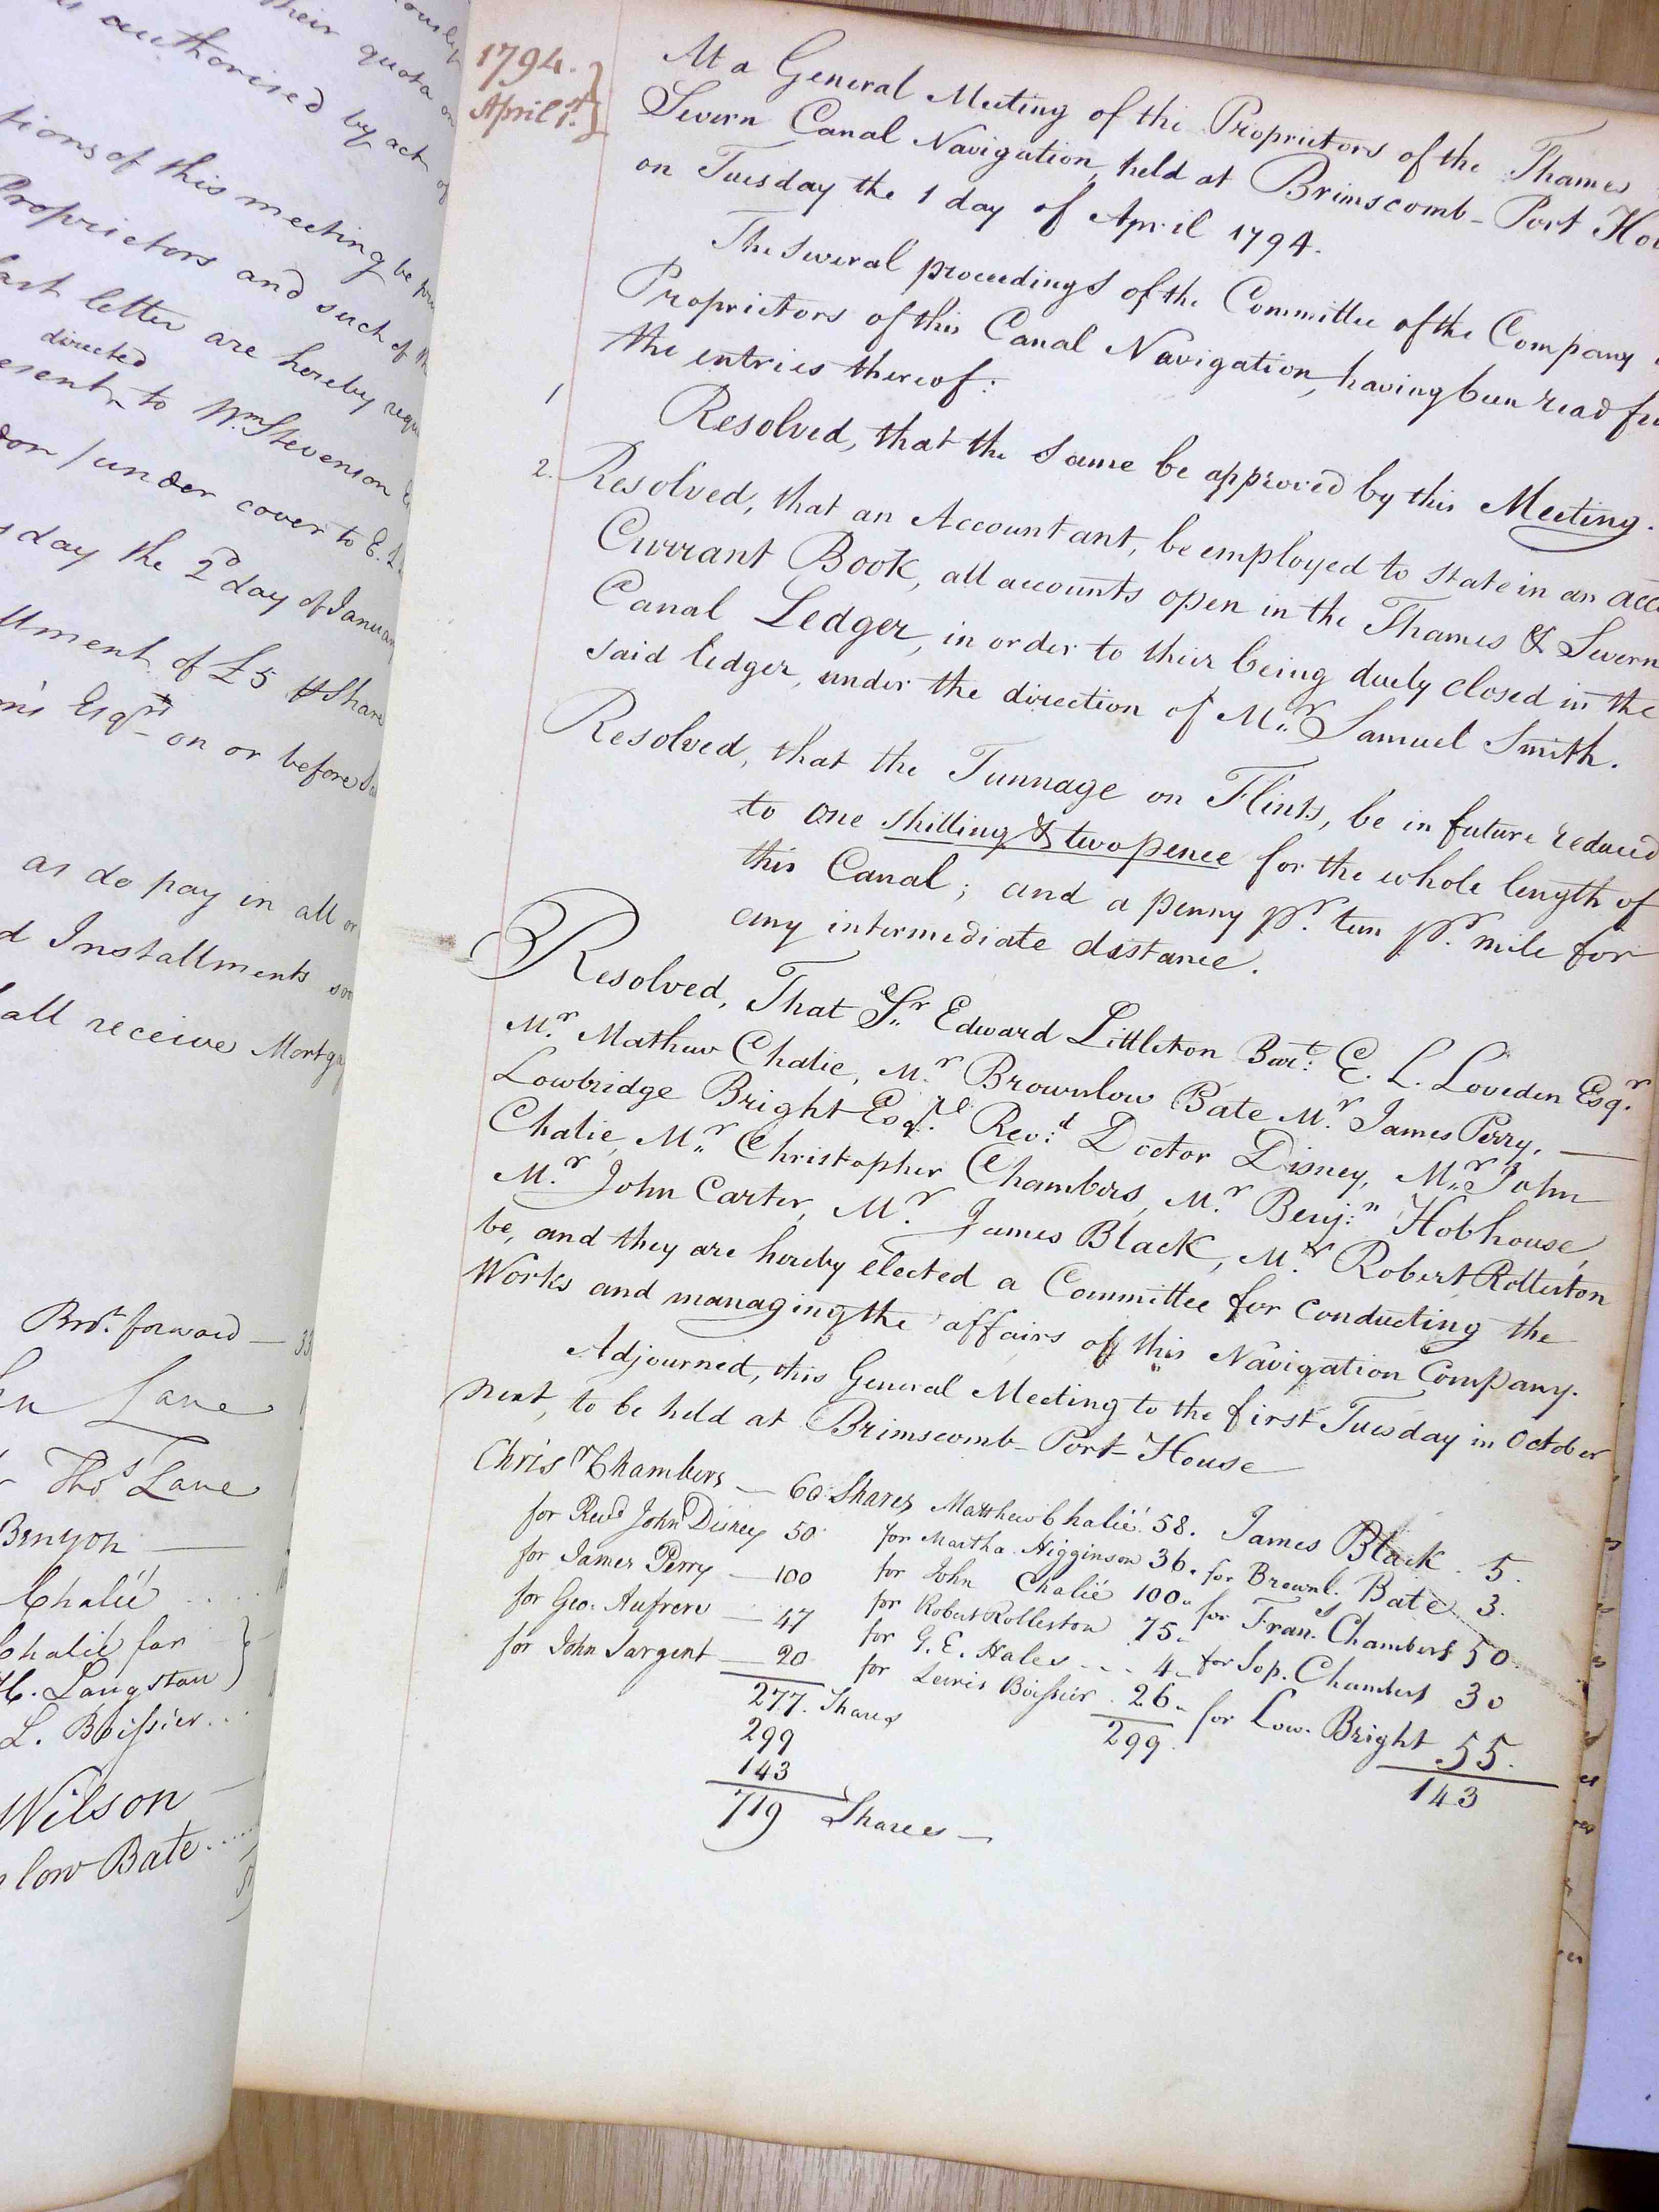 their quota on
authorised by act of
tions of this meeting be
Proprietors and such of
last letter are hereby
directed
esent to Wm. Stevenson
don / under cover to E. L.
day the 2d day of January
llment of £5 ⅌ Share
Esqrs. on or before
as do pay in all or
d Installments
all receive
Brot. forward — 33
Lane
Thos. Lane
Benyon —
Chalié ....
Chalié for
Langston
L. Boissier...
Wilson —
low Bate.....
1794.
April 1st.
At a General Meeting of the Proprietors of the Thames
Severn Canal Navigation, held at Brimscomb-Port
on Tuesday the 1 day of April 1794.
The several proceedings of the Committee of the Company
Proprietors of this Canal Navigation, having been read
the entries thereof:
1
Resolved, that the same be approved by this Meeting.
2. Resolved, that an Accountant, be employed to state in an
Currant Book, all accounts open in the Thames & Severn
Canal Ledger, in order to their being duely closed in the
said ledger, under the direction of Mr. Samuel Smith.
Resolved, that the Tunnage on Flints, be in future reduced
to one shilling & twopence for the whole length of
this Canal; and a penny pr. tun pr. mile for
any intermediate distance.
Resolved, That Sr. Edward Littleton Bart: E. L. Loveden Esqr.
Mr. Mathew Chalie, Mr. Brownlow Bate Mr. James Perry, —
Lowbridge Bright Esqre. Revd. Doctor Disney, Mr. John
Chalie, Mr. Christopher Chambers, Mr. Benjn. Hobhouse,
Mr. John Carter, Mr. James Black, Mr. Robert Rolleston
be, and they are hereby elected a Committee for conducting the
Works and managing the affairs of this Navigation Company.
Adjourned, this General Meeting to the first Tuesday in October
next, to be held at Brimscomb-Port-House
Chrisr. Chambers — 60 Shares Matthew Chalié 58. James Black . 5.
for Revd. John Disney 50 for Martha Higginson 36. for Brownl. Bate 3.
for James Perry — 100 for John Chalié 100. for Frans. Chambers 50.
for Geo. Aufrere — 47 for Robert Rolleston 75. for Sop. Chambers 30
for John Sargent — 20 for G. E. Hales ... 4. for Low. Bright 55.
277. Shares for Lewis Boissier . 26. 143
299 299.
143
719 Shares —